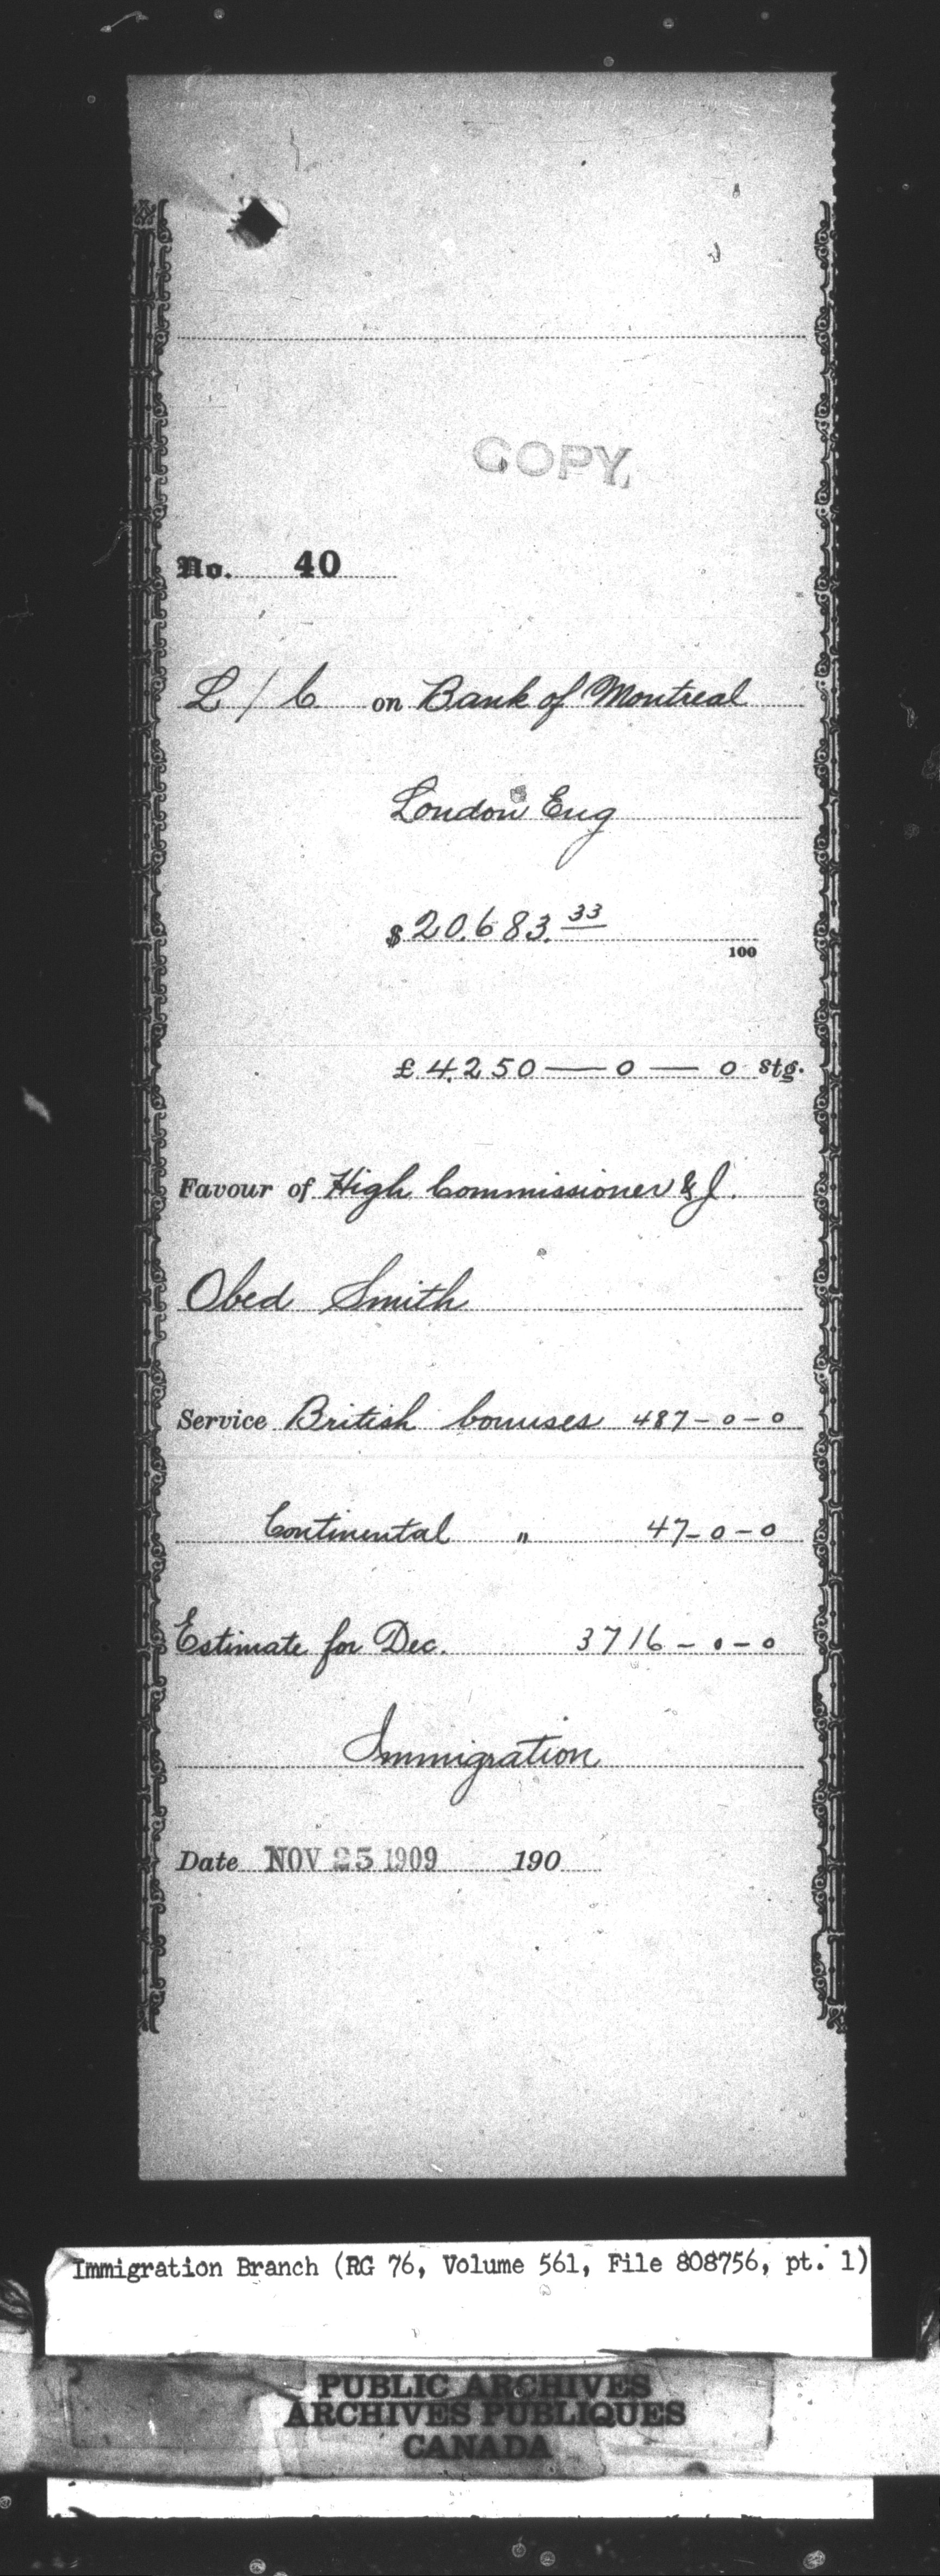 COPY
No. 40
L/C on Bank of Montreal
London Eng
$20.683.33
100
£4,250 — 0 — 0 stg.
Favour of High Commissioner & J.
Obed Smith
Service British bonuses 487-0-0
Continental " 47-0-0
Estimate for Dec. 3716-0-0
Immigration
Date NOV 25 1909 190
Immigration Branch (RG 76, Volume 561, File 808756, pt. 1)
PUBLIC ARCHIVES
ARCHIVES PUBLIQUES
CANADA